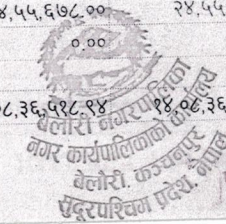 ४,५५,६७८.०० २४,५५
०.००
०८,३६,५१८.९४ १४,०८,३६
बेलौरी नगरपालिका
नगर कार्यपालिकाको कार्यालय
बेलौरी, कञ्चनपुर
सुदूरपश्चिम प्रदेश, नेपाल